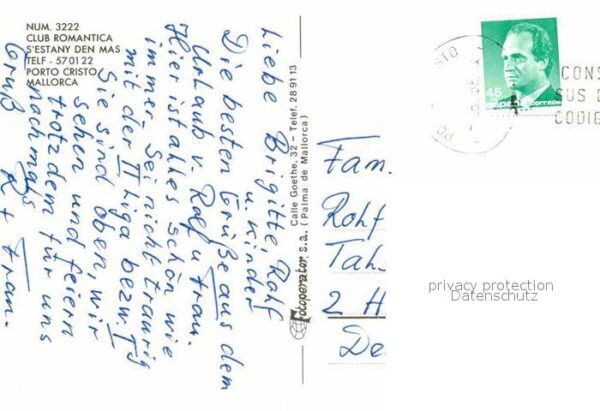 NUM. 3222
CLUB ROMANTICA
S'ESTANY DEN MAS
TELF - 570122
PORTO CRISTO
MALLORCA
Liebe Brigitte Rolf
u. Kinder
Die besten Grüße aus dem
Urlaub v. Rolf u. Frau.
Hier ist alles schön wie
immer. Sei nicht traurig
mit der II Liga bezw. I
Sie sind oben, wir
sehen und feiern
trotzdem für uns
nochmals
Gruß R + Frau.
Fotoperator, s.a.
Calle Goethe, 32 - Telef. 28 91 13
(Palma de Mallorca)
45
españa correos
CONS
SUS
CODIG
Fam.
Rohf
Tah
2 H
De
privacy protection
Datenschutz